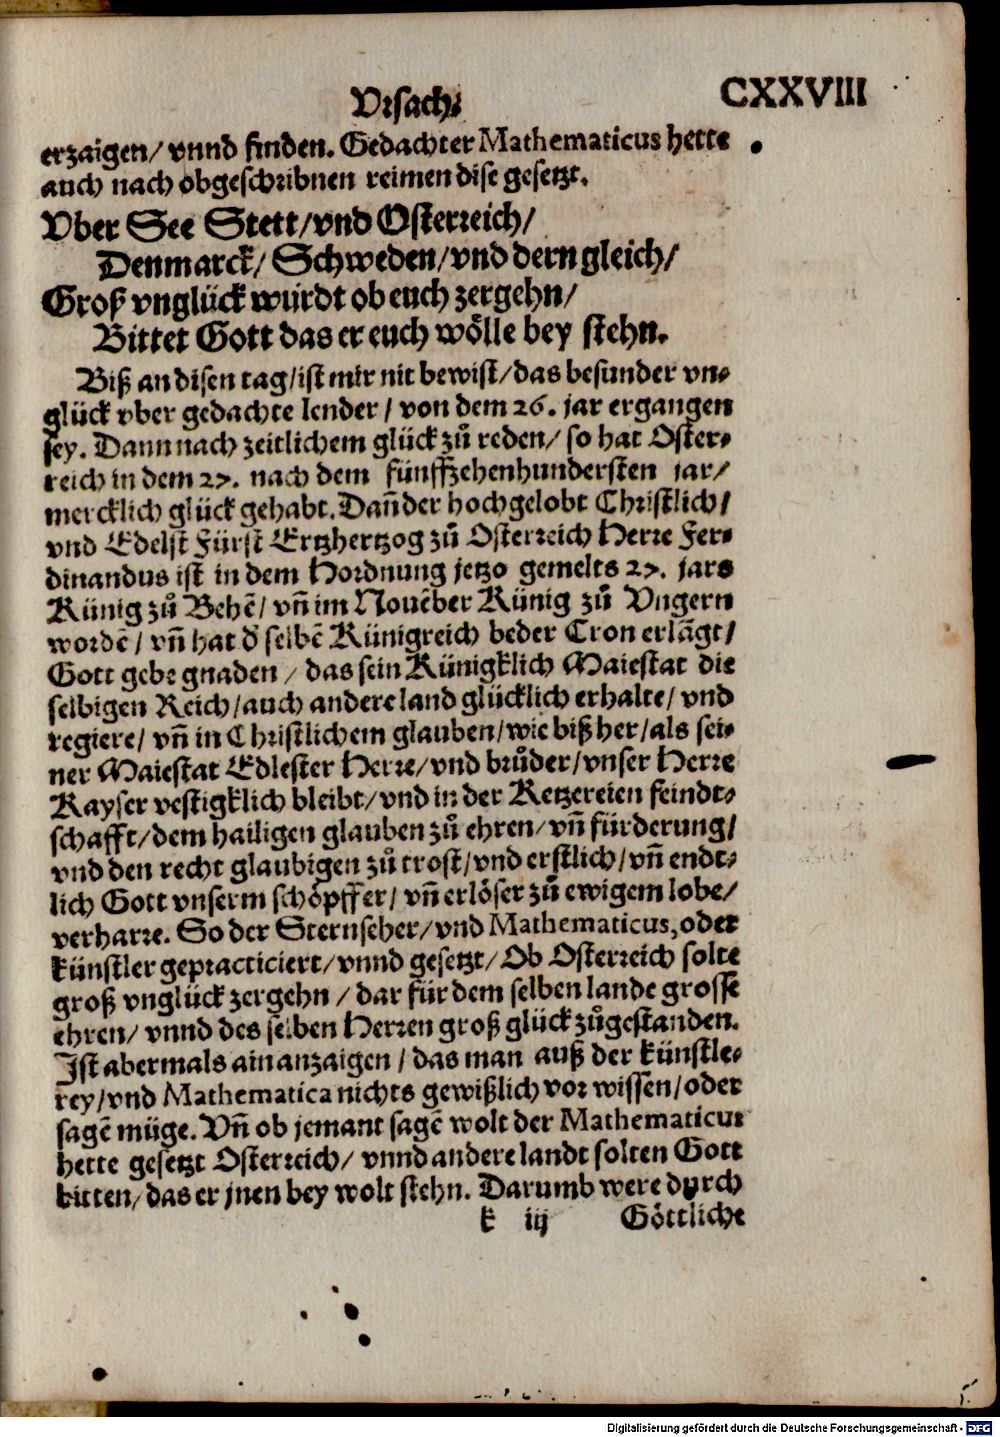 Vrsach. CXXVIII
erzaigen/ vnnd finden. Gedachter Mathematicus hette
auch nach obgeschribnen reimen dise gesetzt.
Vber See Stett/vnd Osterreich/
Denmarck/ Schweden/vnd dern gleich/
Groß vnglück würdt ob euch zergehn/
Bittet Gott das er euch wölle bey stehn.
Biß an disen tag/ist mir nit bewist/das besunder vn⸗
glück vber gedachte lender/ von dem 26. jar ergangen
sey. Dann nach zeitlichem glück zů reden/ so hat Oster⸗
reich in dem 27. nach dem fünffzehenhundersten jar/
mercklich glück gehabt. Dañ der hochgelobt Christlich/
vnd Edelst Fürst Ertzhertzog zů Osterreich Herre Fer⸗
dinandus ist in dem Hordnung jetzo gemelts 27. jars
Künig zů Behē/ vñ im Nouēber Künig zů Vngern
wordē/ vñ hat d̕ selbē Künigreich beder Cron erlāgt/
Gott gebe gnaden/ das sein Künigklich Maiestat die
selbigen Reich/auch andere land glücklich erhalte/ vnd
regiere/ vñ in Christlichem glauben/wie biß her/als sei⸗
ner Maiestat Edlester Herre/vnd brůder/vnser Herre
Kayser vestigklich bleibt/vnd in der Ketzereien feindt⸗
schafft/dem hailigen glauben zů ehren/vñ fürderung/
vnd den recht glaubigen zů trost/vnd erstlich/vñ endt⸗
lich Gott vnserm schöpffer/ vñ erlöser zů ewigem lobe/
verharre. So der Sternseher/vnd Mathematicus,oder
künstler gepracticiert/vnnd gesetzt/Ob Osterreich solte
groß vnglück zergehn/ dar für dem selben lande grosse
ehren/ vnnd des selben Herren groß glück zůgestanden.
Ist abermals ain anzaigen/das man auß der künstle⸗
rey/vnd Mathematica nichts gewißlich vor wissen/oder
sagē müge. Vñ ob jemant sagē wolt der Mathematicus
hette gesetzt Osterreich/ vnnd andere landt solten Gott
bitten/das er jnen bey wolt stehn. Darumb were durch
k iij Göttliche
Digitalisierung gefördert durch die Deutsche Forschungsgemeinschaft - DFG